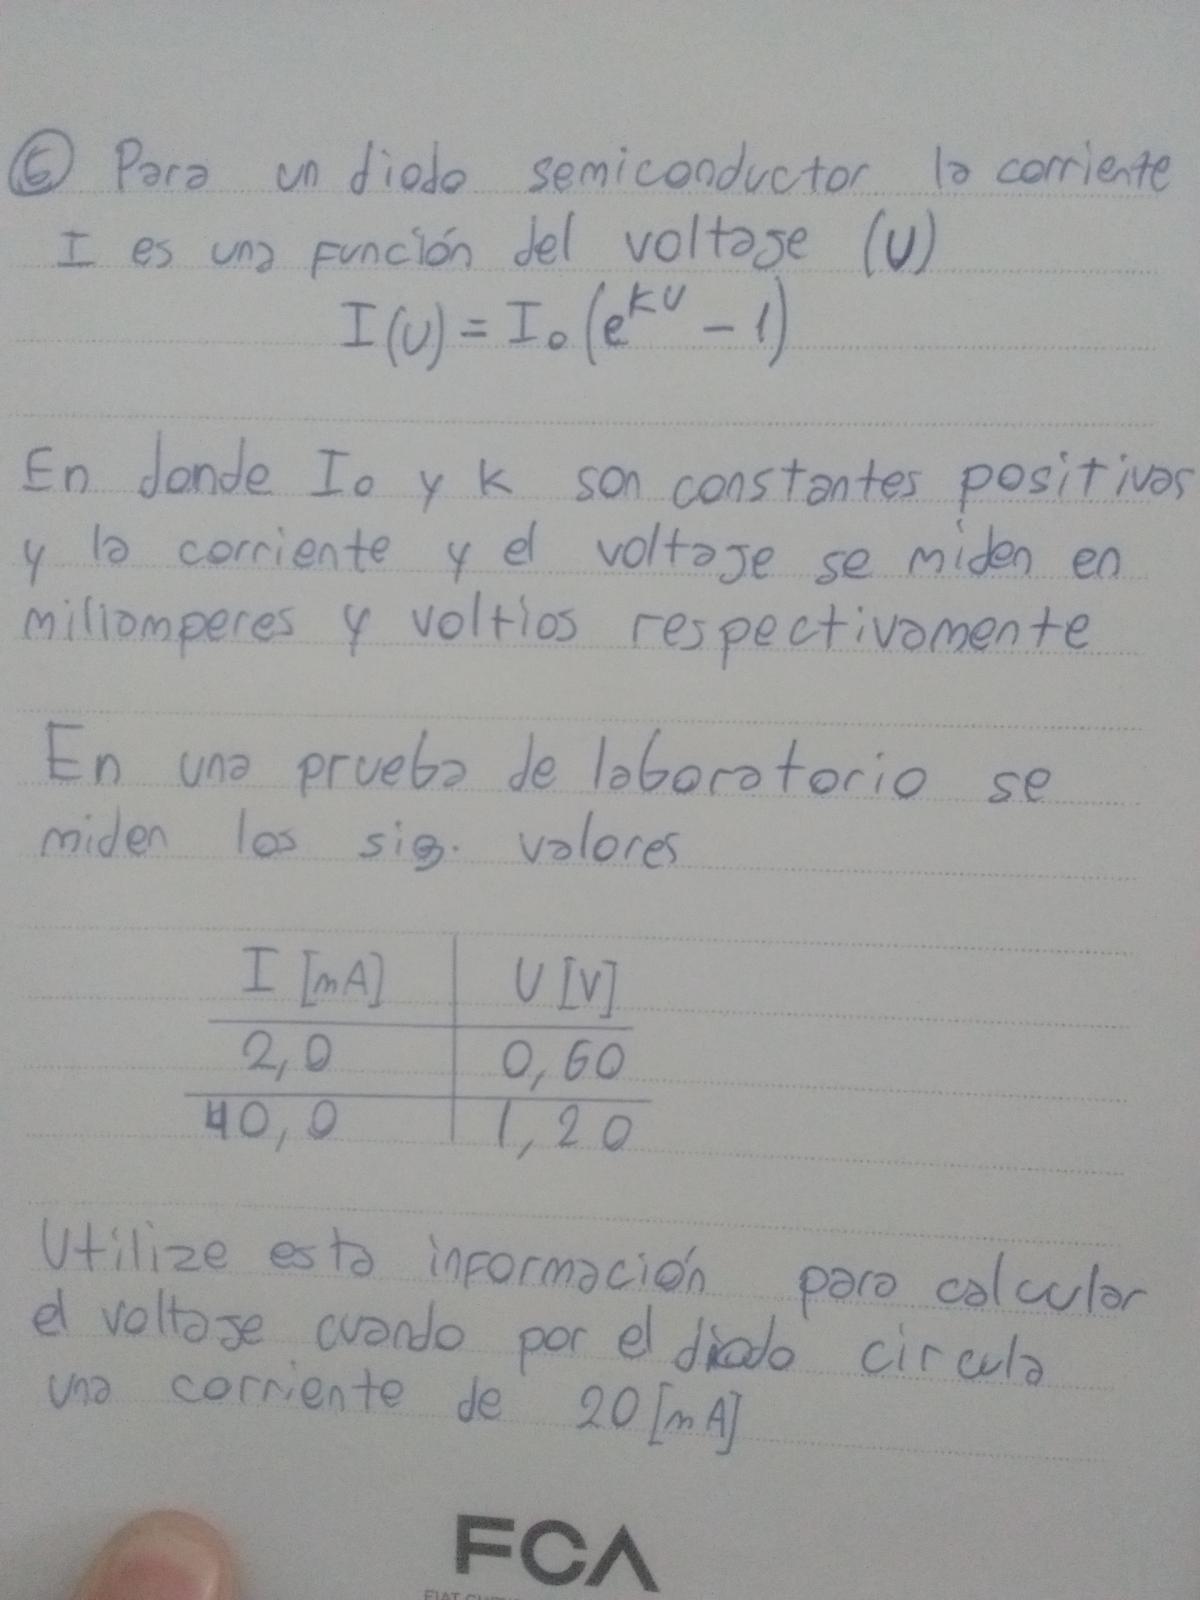 ⑥ Para un diodo semiconductor la corriente
I es una función del voltage (U)
I(U) = I₀(e^kU - 1)
En donde I₀ y k son constantes positivas
y la corriente y el voltaje se miden en
miliamperes y voltios respectivamente
En una prueba de laboratorio se
miden los sig. valores
I [mA] U [V]
2,0 0,60
40,0 1,20
Utilize esta información para calcular
el voltage cuando por el diodo circula
una corriente de 20 [mA]
FCA